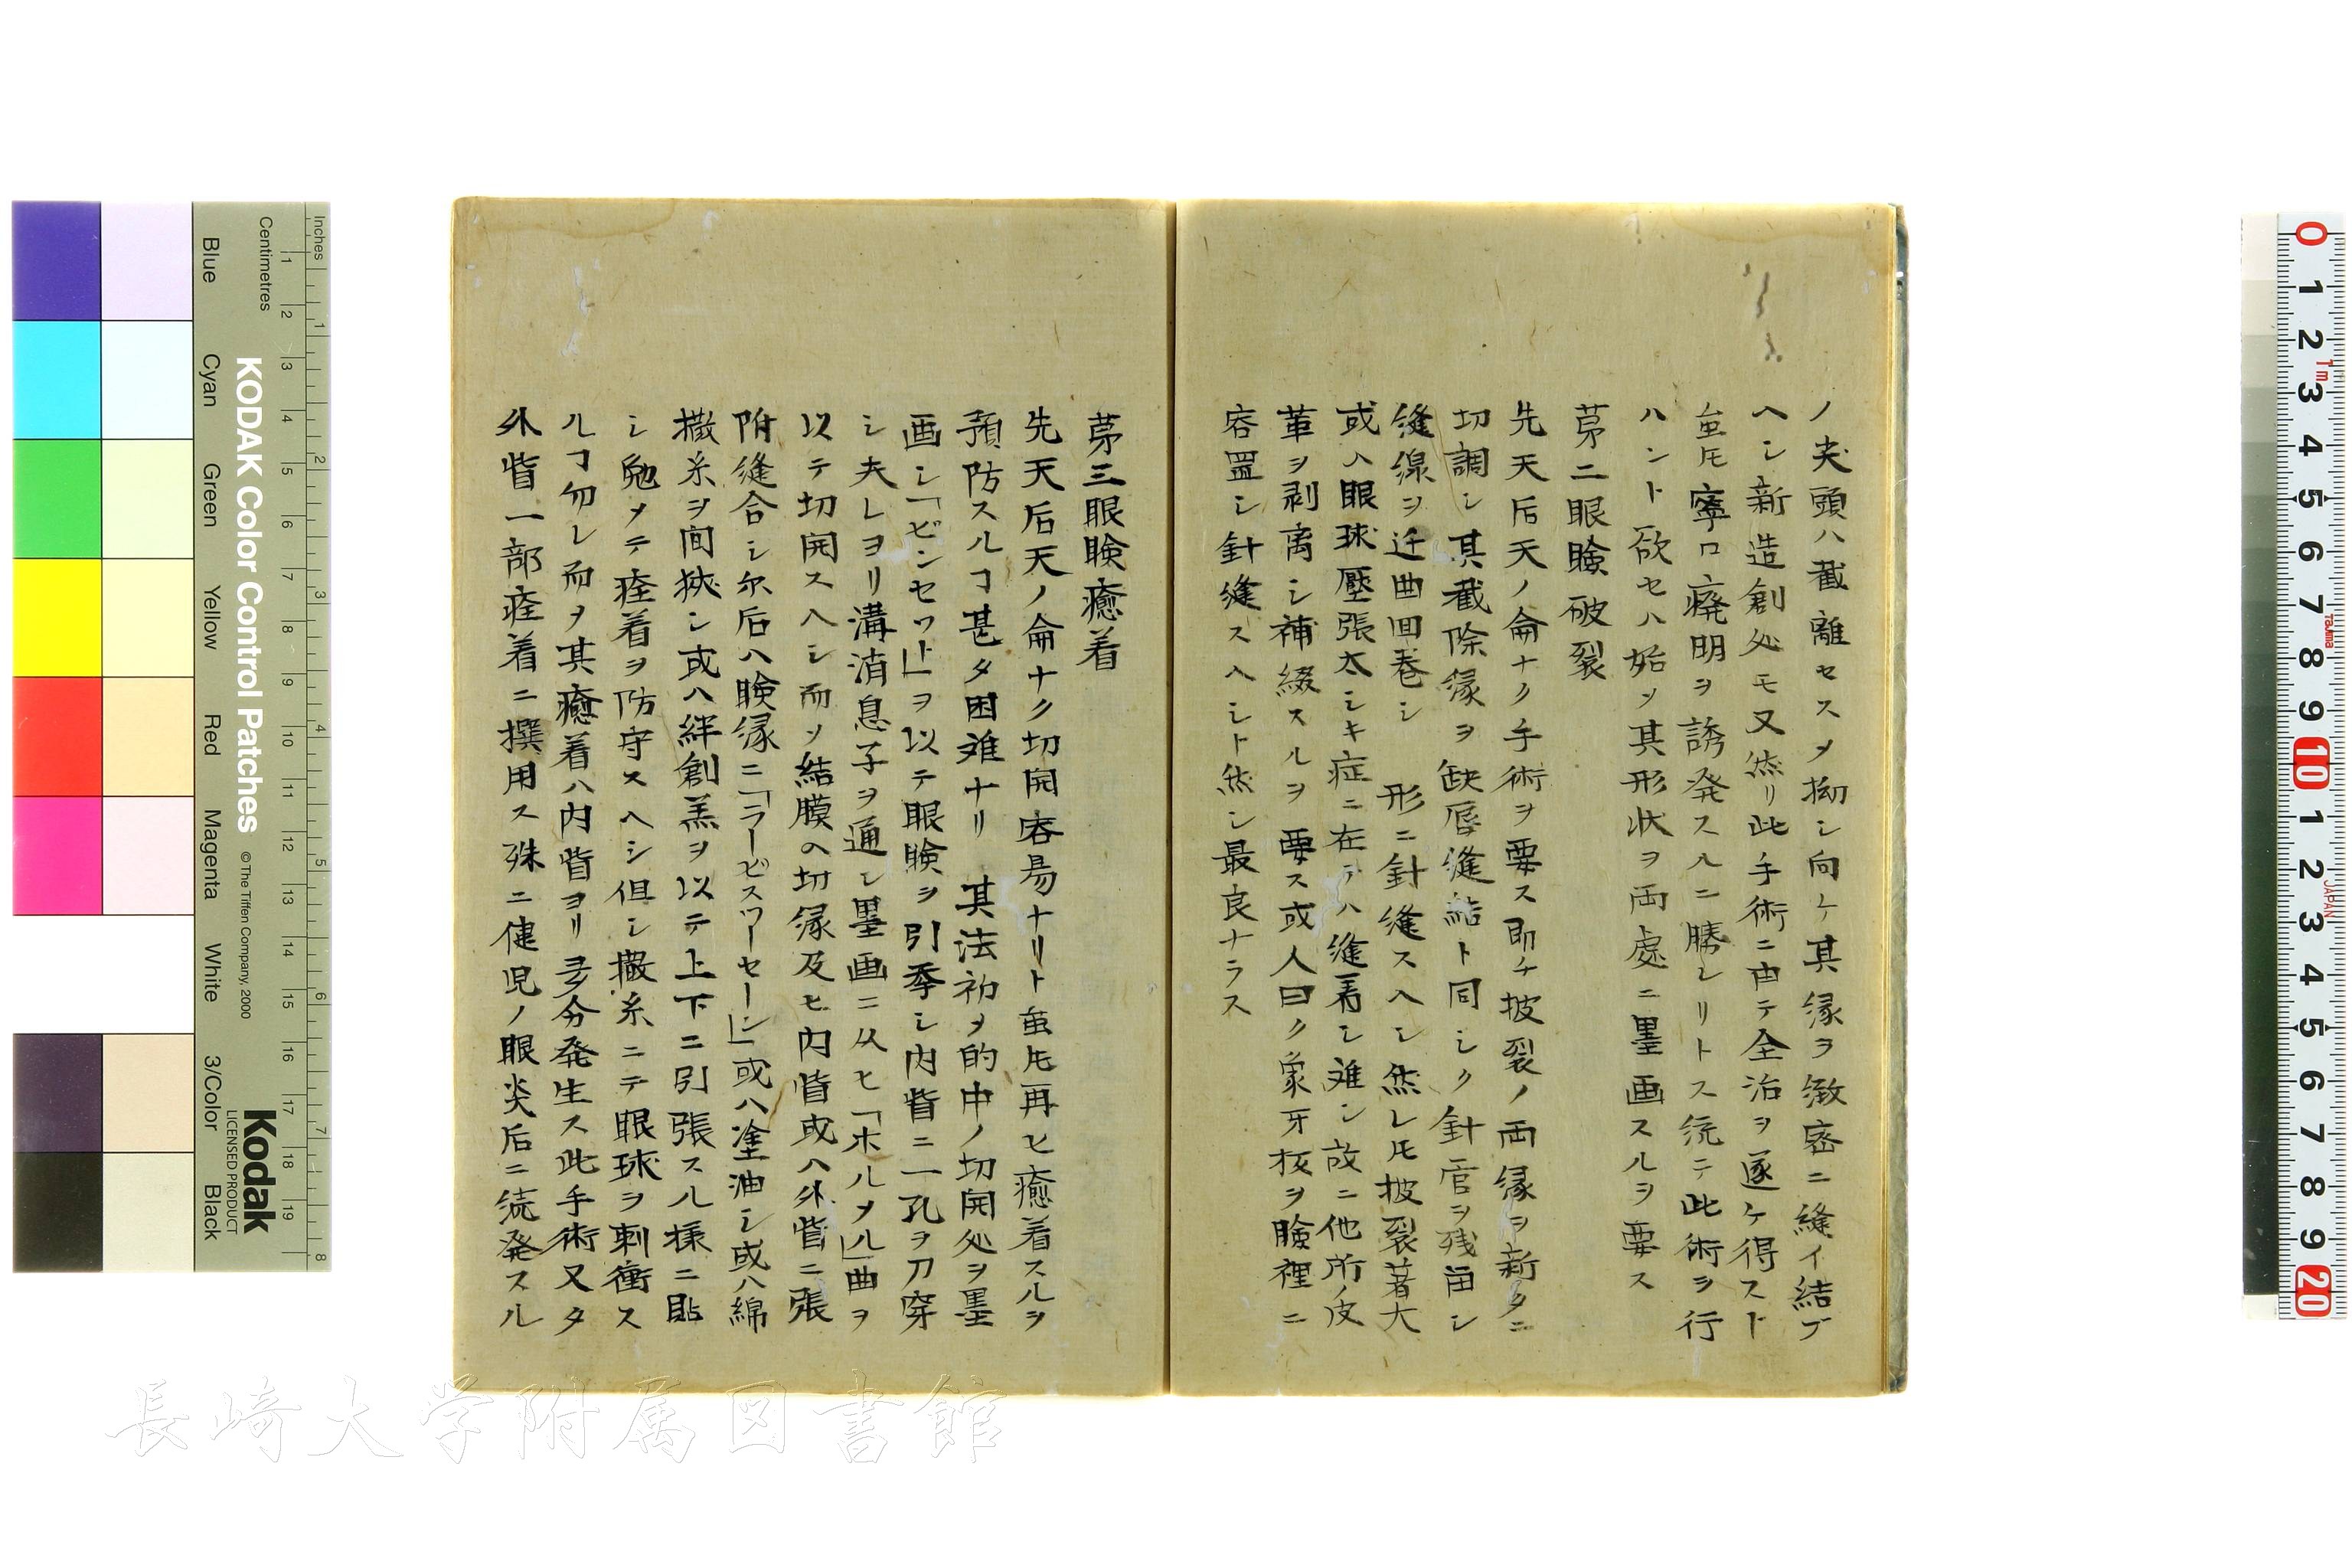 ノ尖頭ハ截離セスメ拗シ向ケ其縁ヲ緻密ニ縫イ結ブ
ヘシ新造創処モ又然リ此手術ニ由テ全治ヲ遂ケ得スト
虽𪜈寧ロ癈明ヲ誘発スルニ勝レリトス統テ此術ヲ行
ハント欲セハ始ソ其形状ヲ両處ニ墨画スルヲ要ス
苐二眼瞼破裂
先天后天ノ侖ナク手術ヲ要ス即チ披裂ノ両縁ヲ新タニ
切調シ其截除縁ヲ缺唇縫結ト同シク針官ヲ残畄シ
縫線ヲ迂曲回巻シ 形ニ針縫スヘシ然レ𪜈披裂著大
或ハ眼球壓張太シキ症ニ在テハ縫着シ难シ故ニ他所ノ皮
革ヲ剥离シ補綴スルヲ要ス或人曰ク象牙板ヲ瞼裡ニ
容置シ針縫スヘシト然シ最良ナラス
苐三眼瞼癒着
先天后天ノ侖ナク切開容易ナリト虽𪜈再ヒ癒着スルヲ
預防スルヿ甚タ困难ナリ 其法初メ的中ノ切開処ヲ墨
画シ「ビンセット」ヲ以テ眼瞼ヲ引季シ内眥ニ一孔ヲ刀穿
シ夫レヨリ溝消息子ヲ通シ墨画ニ从ヒ「ホルメル」曲ヲ
以テ切開スヘシ而ソ結膜の切縁及ヒ内眥或ハ外眥ニ張
附縫合シ尔后ハ瞼縁ニ「ラービスワーセーン」或ハ塗油シ或ハ綿
撒糸ヲ间挾シ或ハ絆創羔ヲ以テ上下ニ引張スル様ニ貼
シ勉メテ痊着ヲ防守スヘシ但シ撒糸ニテ眼球ヲ刺衝ス
ルヿ勿レ而ヲ其癒着ハ内眥ヨリ多分発生ス此手術又タ
外眥一部痊着ニ撰用ス殊ニ健児ノ眼炎后ニ続発スル
Inches
Centimetres
KODAK Color Control Patches
© The Tiffen Company, 2000
Kodak
LICENSED PRODUCT
Blue
Cyan
Green
Yellow
Red
Magenta
White
3/Color
Black
長崎大学附属図書館